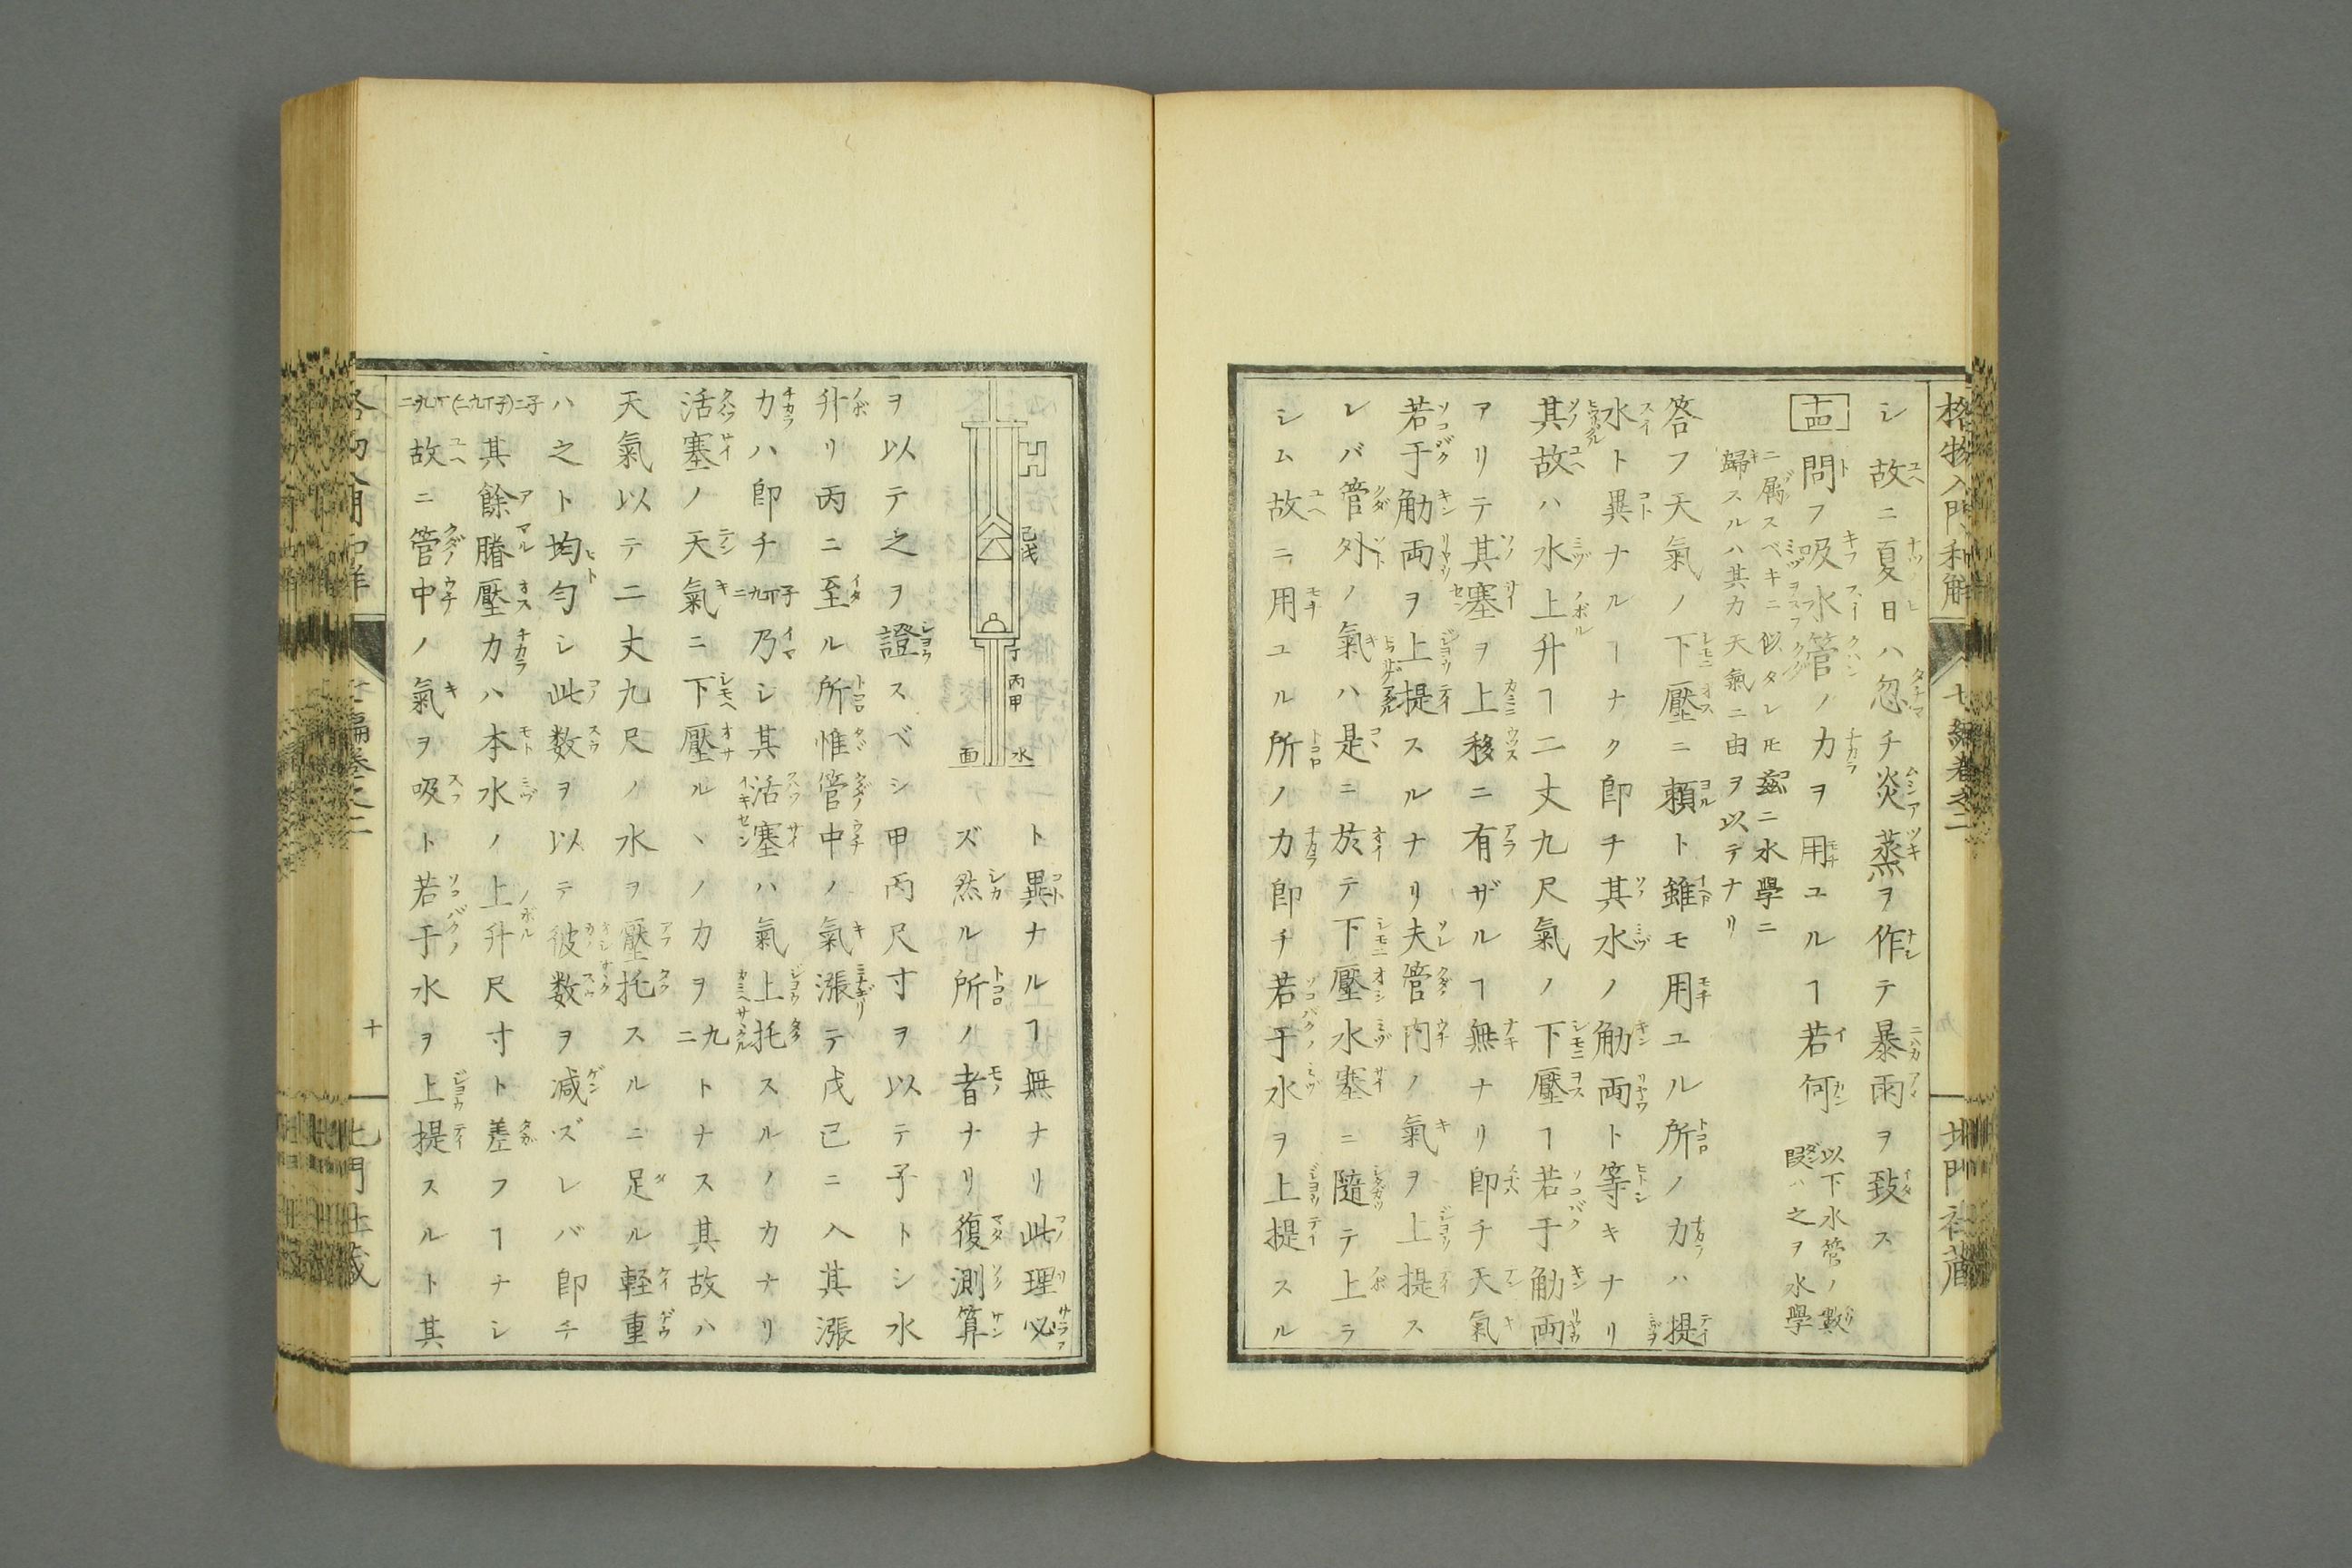 格物入門和解 七編卷之二 北門社蔵
シ故ニ夏日ハ忽チ炎蒸ヲ作テ暴雨ヲ致ス
十四 問フ吸水管ノ力ヲ用ユルヿ若何 以下水管ノ數段ハ之ヲ水學
ニ属スベキニ似タレ𪜈茲ニ水學ニ
歸スルハ其力天氣ニ由ヲ以テナリ
答フ天氣ノ下壓ニ頼ト雖モ用ユル所ノ力ハ提
水ト異ナルヿナク即チ其水ノ觔両ト等キナリ
其故ハ水上升ヿ二丈九尺氣ノ下壓ヿ若干觔両
アリテ其塞ヲ上移ニ有ザルヿ無ナリ即チ天氣
若干觔両ヲ上提スルナリ夫管内ノ氣ヲ上提ス
レバ管外ノ氣ハ是ニ於テ下壓水塞ニ隨テ上ラ
シム故ニ用ユル所ノ力即チ若干水ヲ上提スル
ト異ナルヿ無ナリ此理必
ズ然ル所ノ者ナリ復測算
己戊
子
丙甲
水
面
ヲ以テ之ヲ證スベシ甲丙尺寸ヲ以テ子トシ水
升リ丙ニ至ル所惟管中ノ氣漲テ戊己ニ入其漲
力ハ即チ二九丅子乃シ其活塞ハ氣上托スルノカナリ
活塞ノ天氣ニ下壓ルヽノカヲ二九トナス其故ハ
天氣以テ二丈九尺ノ水ヲ壓托スルニ足ル軽重
ハ之ト均勻シ此数ヲ以テ彼数ヲ減ズレバ即チ
二九丅(二九丅子)二子其餘賸壓力ハ本水ノ上升尺寸ト差フヿナシ
故ニ管中ノ氣ヲ吸ト若干水ヲ上提スルト其
十